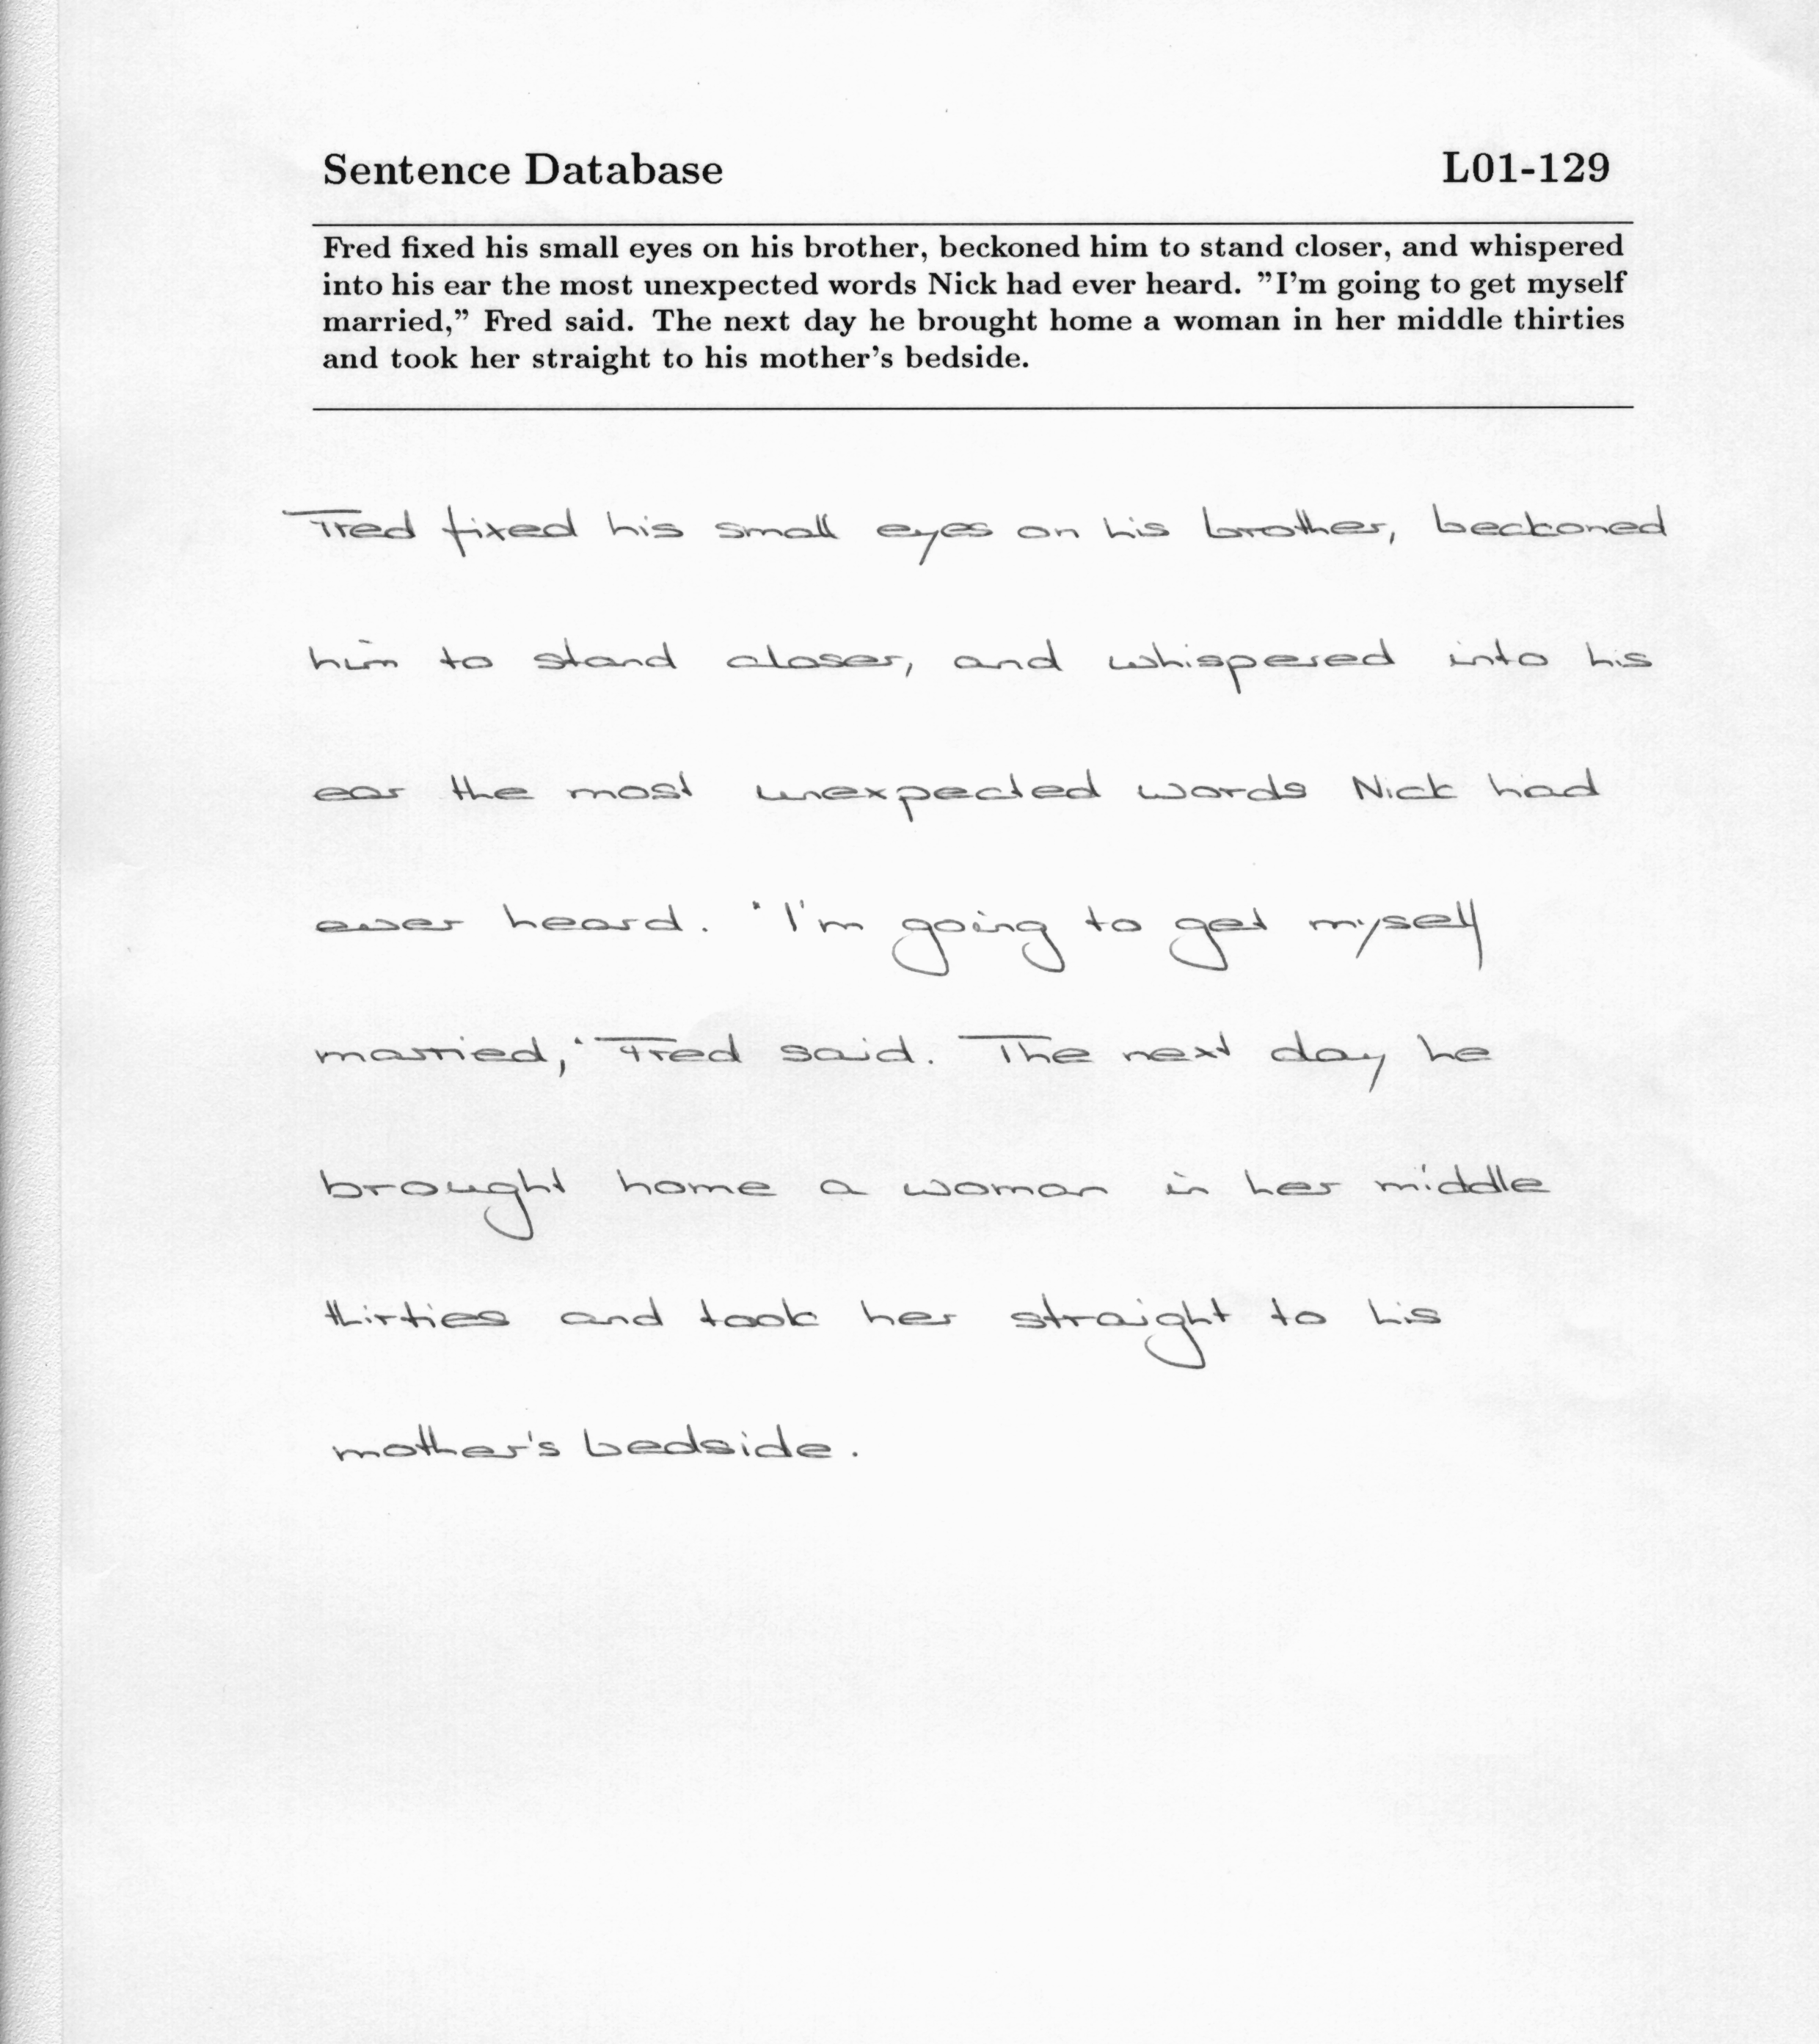 Sentence Database L01-129
Fred fixed his small eyes on his brother, beckoned him to stand closer, and whispered
into his ear the most unexpected words Nick had ever heard. "I'm going to get myself
married," Fred said. The next day he brought home a woman in her middle thirties
and took her straight to his mother's bedside.
Fred fixed his small eyes on his brother, beckoned
him to stand closer, and whispered into his
ear the most unexpected words Nick had
ever heard. "I'm going to get myself
married," Fred said. The next day he
brought home a woman in her middle
thirties and took her straight to his
mother's bedside.